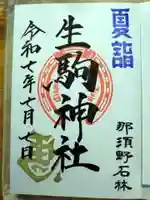 夏詣
生駒神社
那須野石林
令和七年七月七日